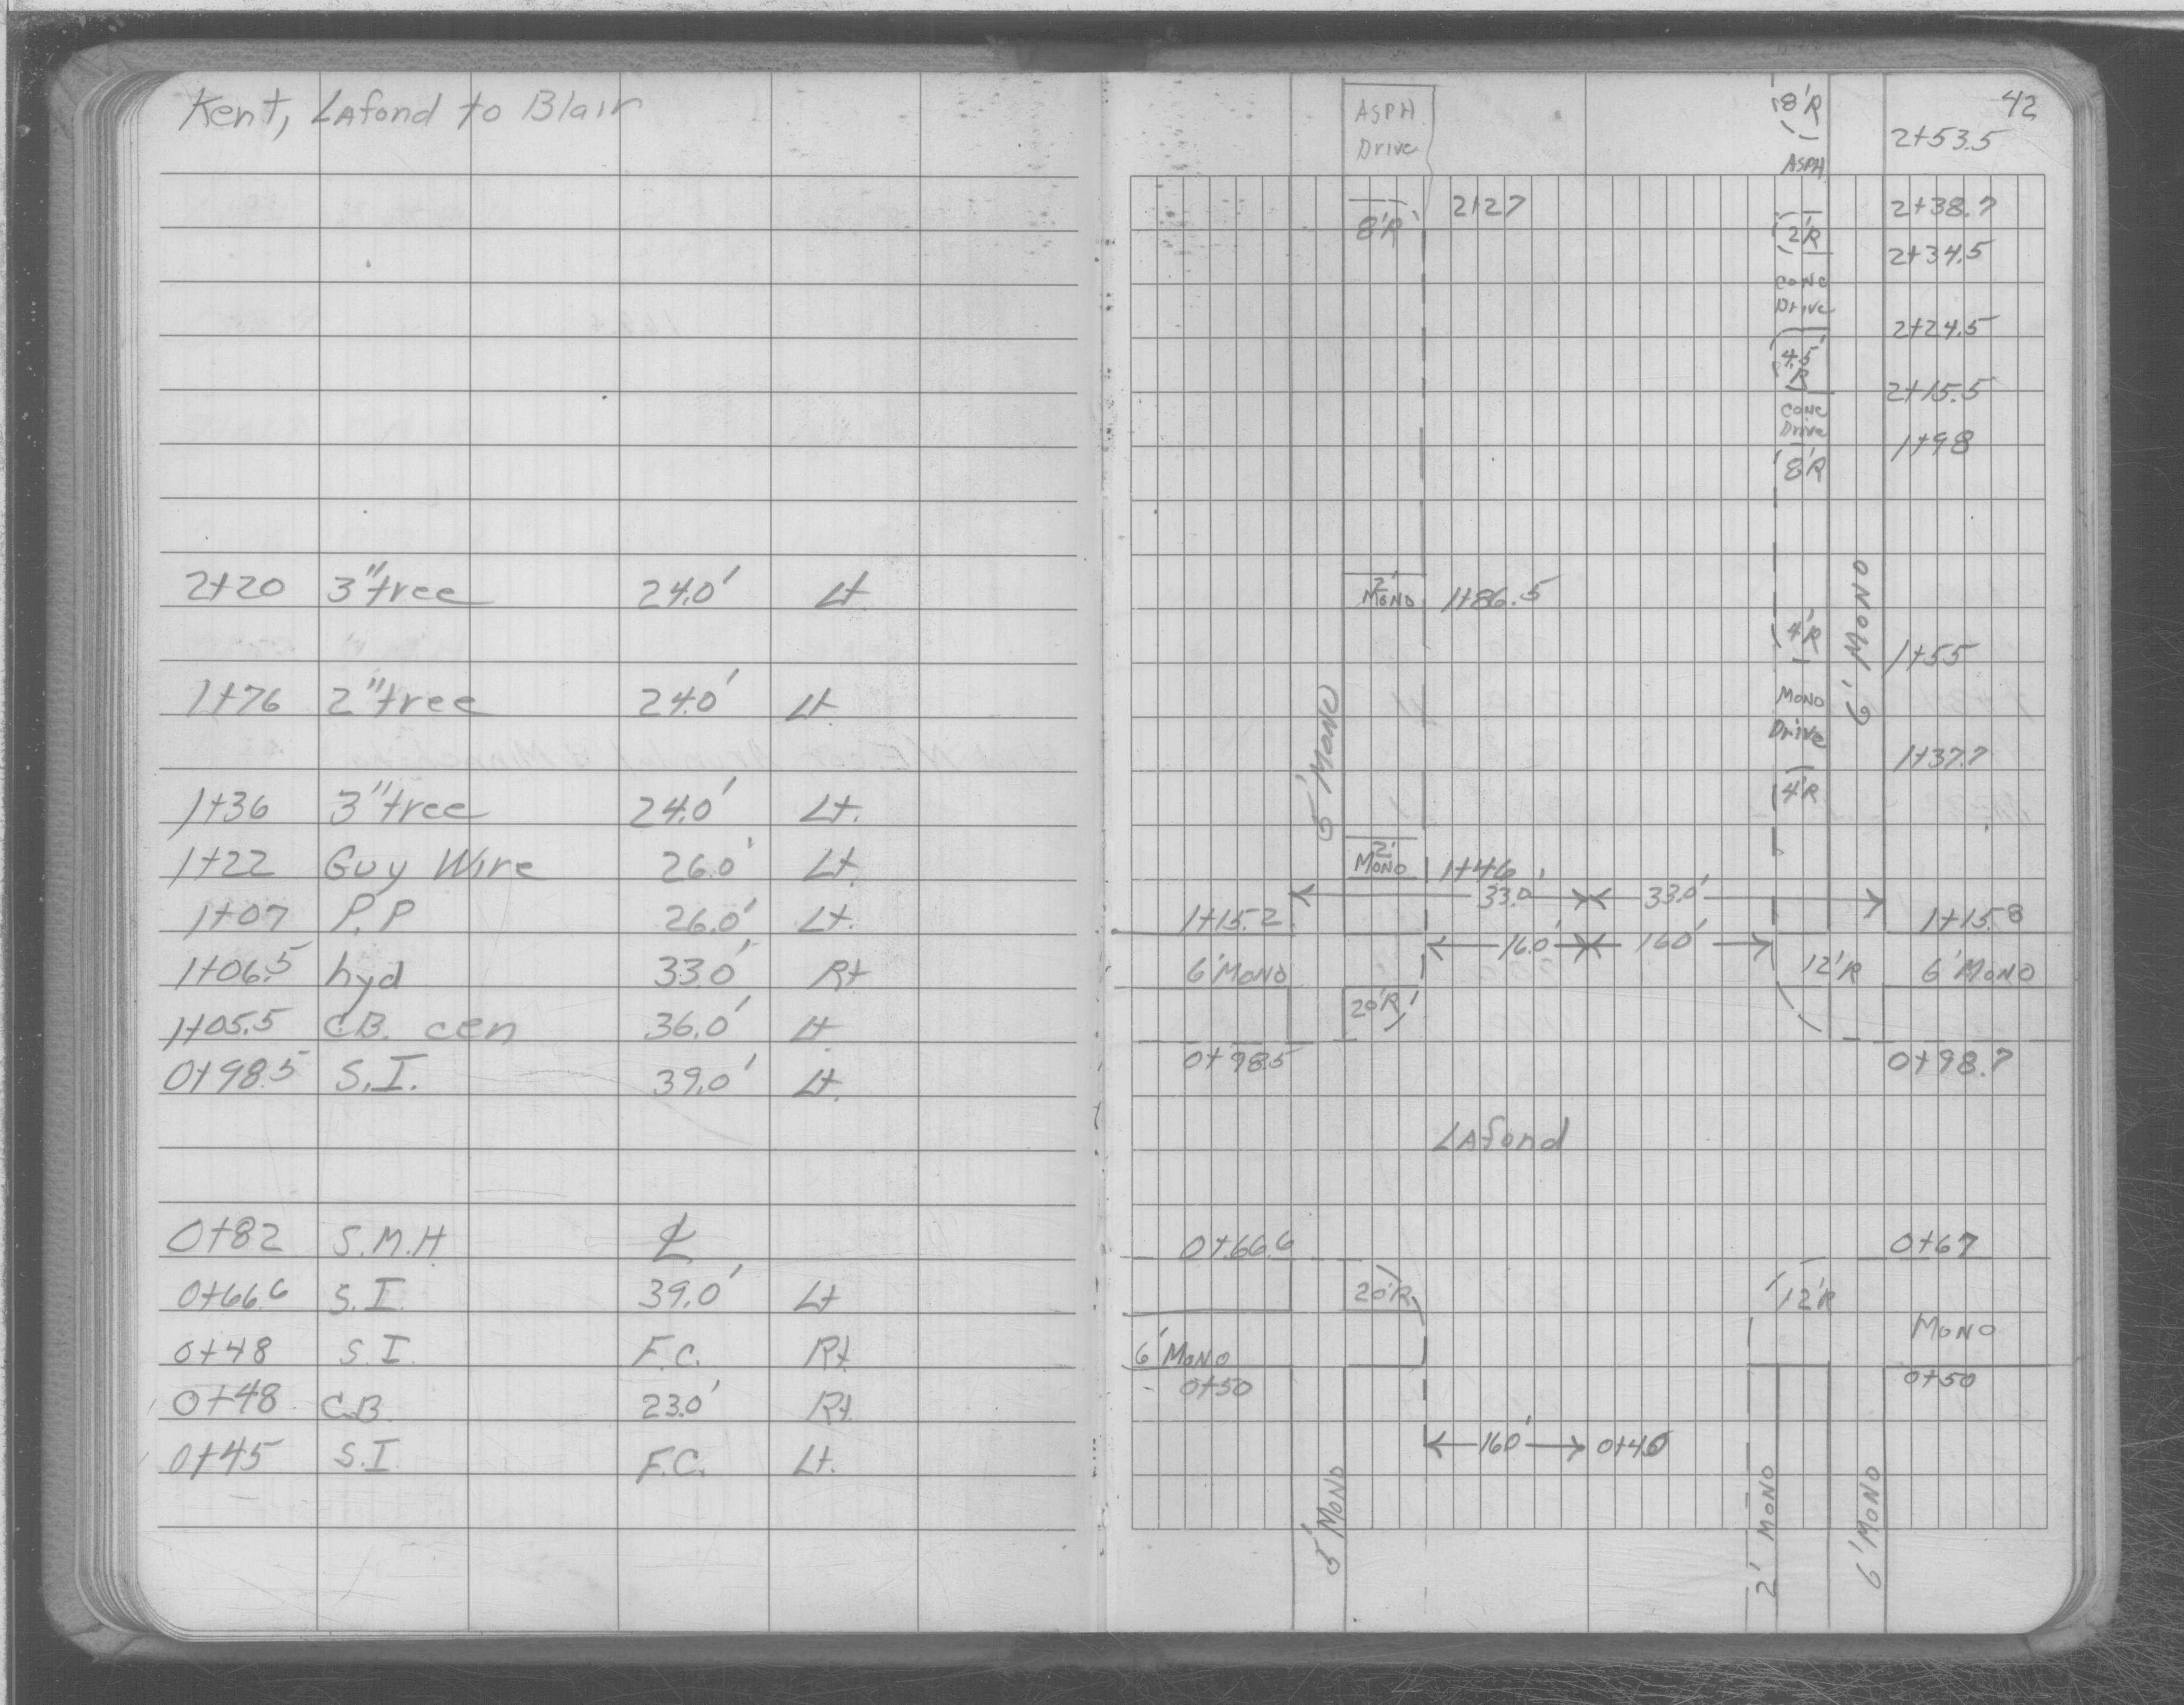 Kent, Lafond to Blair
2+20 3" tree 24.0' Lt.
1+76 2" tree 24.0' Lt.
1+36 3" tree 24.0' Lt.
1+22 Guy Wire 26.0' Lt.
1+07 P.P 26.0' Lt.
1+06.5 hyd 33.0' Rt
1+05.5 C.B. cen 36.0' Lt
0+98.5 S.I. 39.0' Lt.
0+82 S.M.H ℄
0+66.6 S.I. 39.0' Lt
0+48 S.I. F.C. Rt
0+48 C.B. 23.0' Rt
0+45 S.I F.C. Lt.
42
ASPH Drive
8'R
2+53.5
ASPH
8'R 2+27
2+38.7
2'R
2+34.5
CONC Drive
2+24.5
4.5' R
2+15.5
CONC Drive
1+98
8'R
2' MONO 1+86.5
4'R
6' MONO
1+55
MONO Drive
5' MONO
1+37.7
4'R
2' MONO 1+46
33.0' 33.0'
1+15.2 1+15.8
16.0' 16.0'
6' MONO 12'R 6' MONO
20'R
0+98.5 0+98.7
Lafond
0+66.6 0+67
20'R 12'R
6' MONO MONO
0+50 0+50
16.0' 0+45
5' MONO 2' MONO 6' MONO